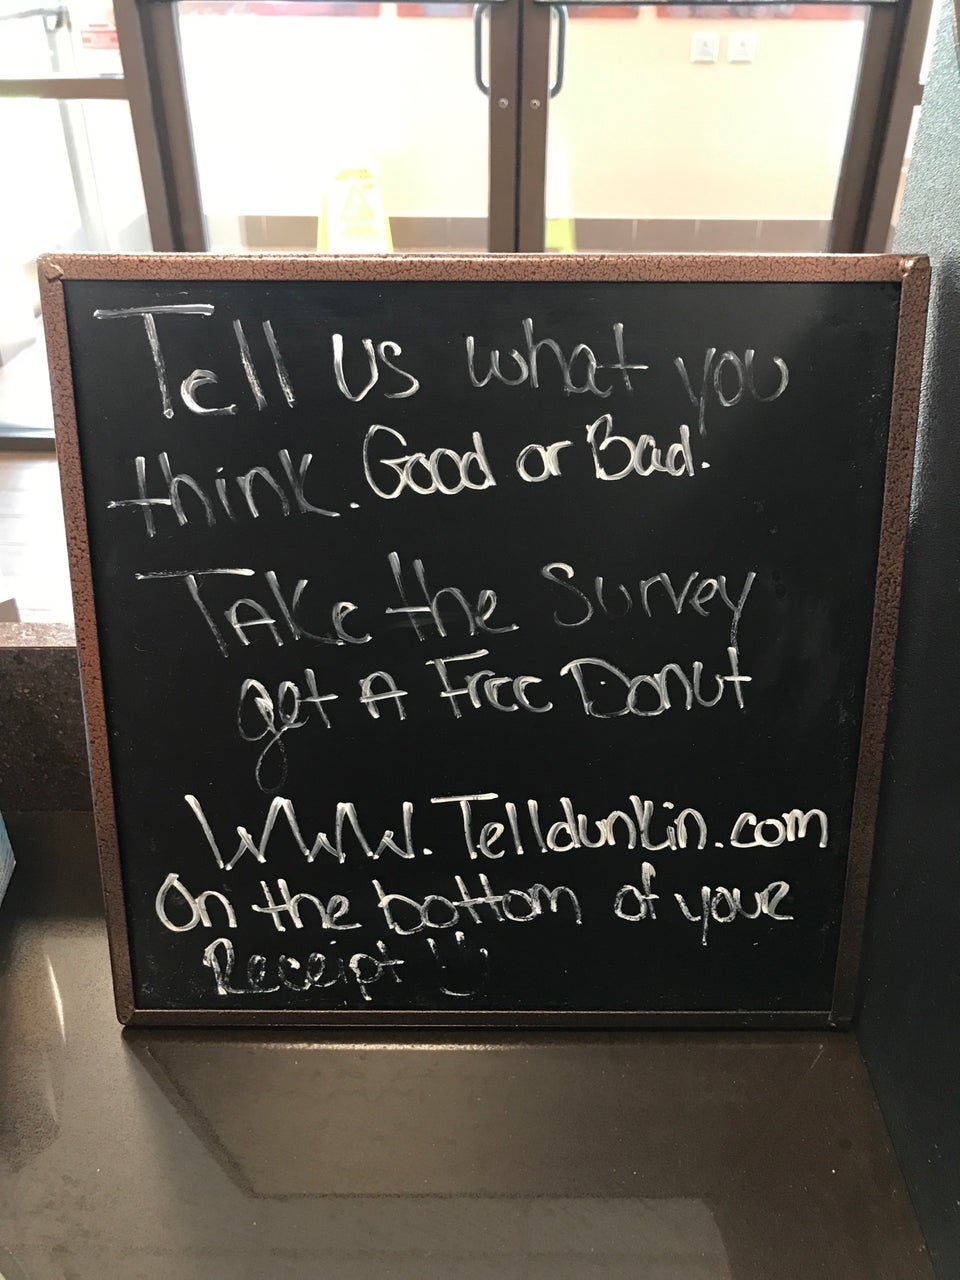 Tell us what you
think. Good or Bad.
TAKe the Survey
get A Free Donut
WWW.Telldunkin.com
On the bottom of youR
Receipt